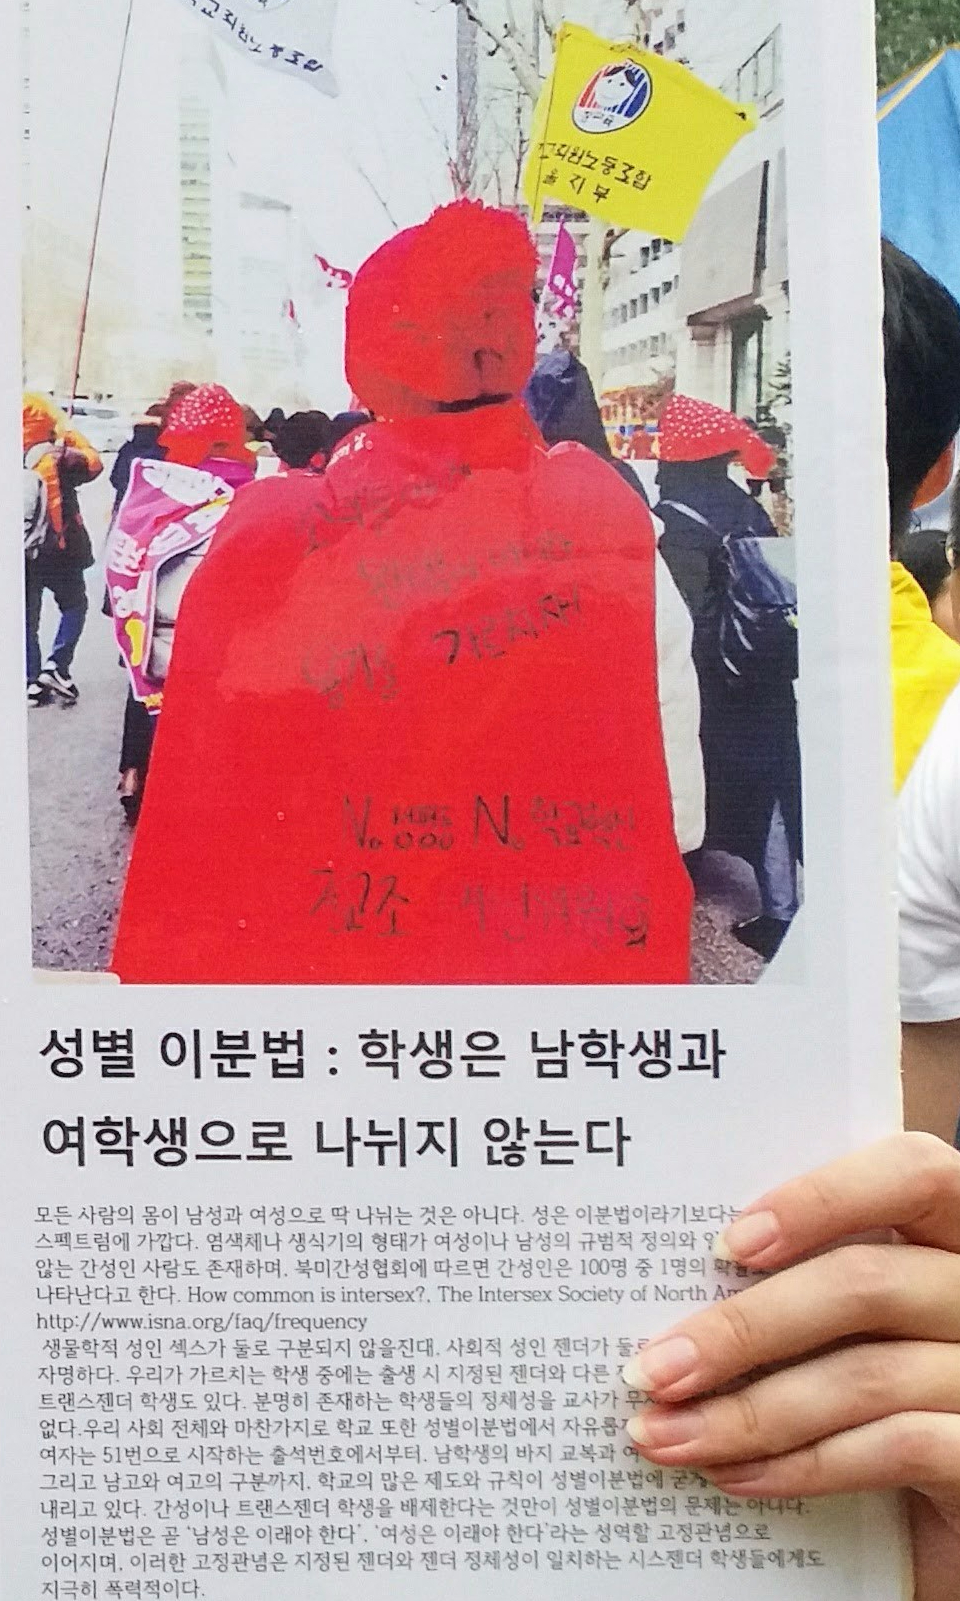 교직원노동조합
교직원노동조합
울지부
가르치자
No 성평등 No
전교조
성별 이분법 : 학생은 남학생과
여학생으로 나뉘지 않는다
모든 사람의 몸이 남성과 여성으로 딱 나뉘는 것은 아니다. 성은 이분법이라기보다는
스펙트럼에 가깝다. 염색체나 생식기의 형태가 여성이나 남성의 규범적 정의와
않는 간성인 사람도 존재하며, 북미간성협회에 따르면 간성인은 100명 중 1명의 확률로
나타난다고 한다. How common is intersex?, The Intersex Society of North
http://www.isna.org/faq/frequency
생물학적 성인 섹스가 둘로 구분되지 않을진대, 사회적 성인 젠더가 둘로
자명하다. 우리가 가르치는 학생 중에는 출생 시 지정된 젠더와 다른
트랜스젠더 학생도 있다. 분명히 존재하는 학생들의 정체성을 교사가
없다.우리 사회 전체와 마찬가지로 학교 또한 성별이분법에서
여자는 51번으로 시작하는 출석번호에서부터, 남학생의 바지 교복과
그리고 남고와 여고의 구분까지, 학교의 많은 제도와 규칙이 성별이분법에
내리고 있다. 간성이나 트랜스젠더 학생을 배제한다는 것만이 성별이분법의 문제는 아니다.
성별이분법은 곧 '남성은 이래야 한다', '여성은 이래야 한다'라는 성역할 고정관념으로
이어지며, 이러한 고정관념은 지정된 젠더와 젠더 정체성이 일치하는 시스젠더 학생들에게도
지극히 폭력적이다.